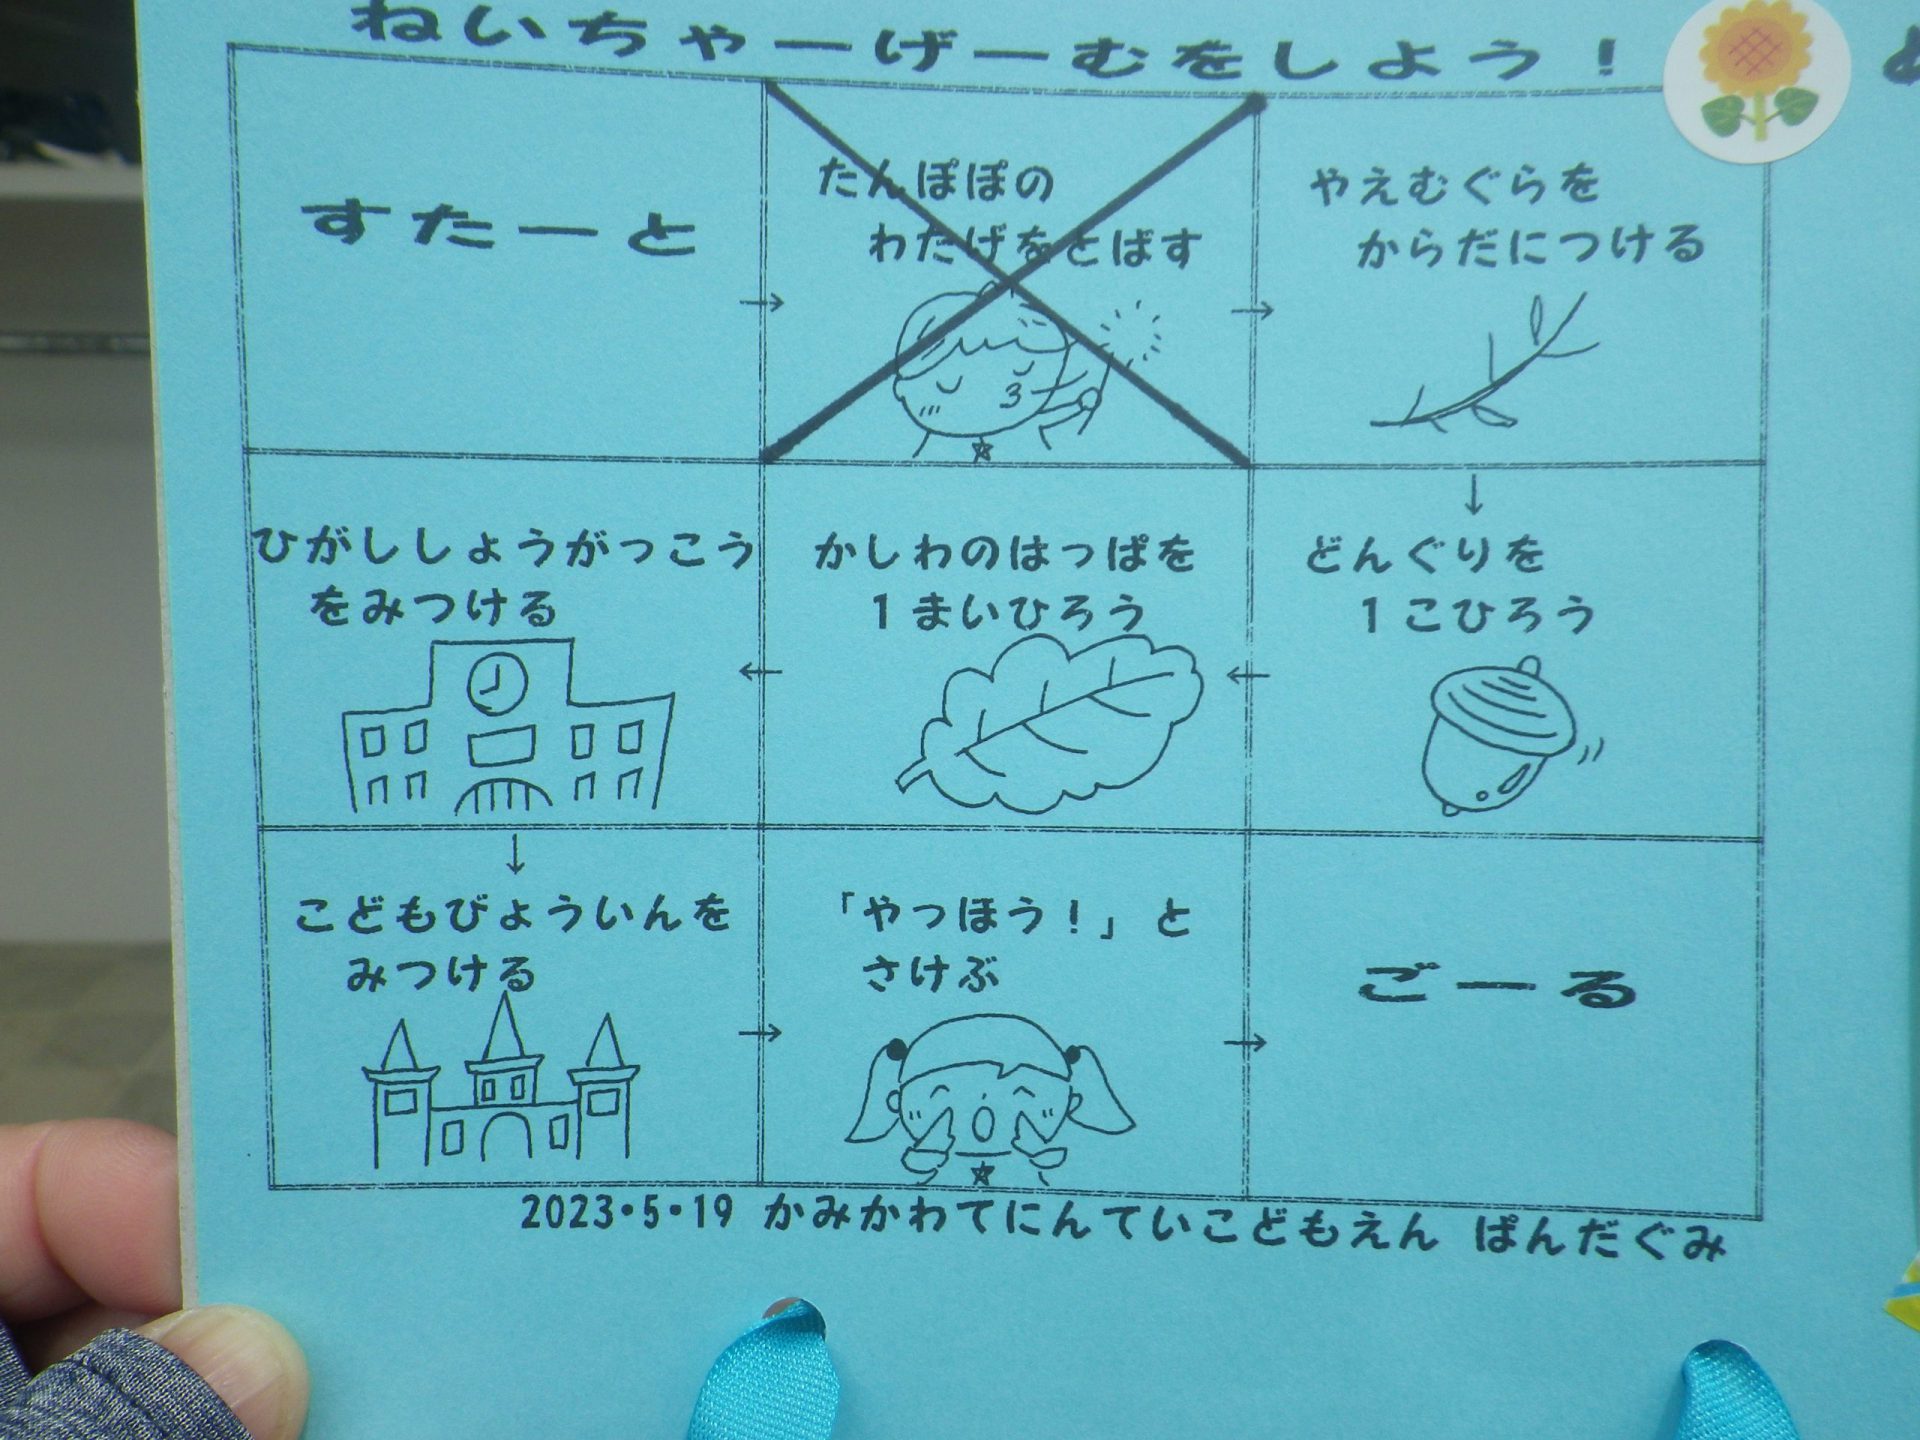 ねいちゃーげーむをしよう！
すたーと
たんぽぽの
わたげをとばす
やえむぐらを
からだにつける
ひがししょうがっこう
をみつける
かしわのはっぱを
1まいひろう
どんぐりを
1こひろう
こどもびょういんを
みつける
「やっほう！」と
さけぶ
ごーる
2023・5・19 かみかわてにんていこどもえん ぱんだぐみ